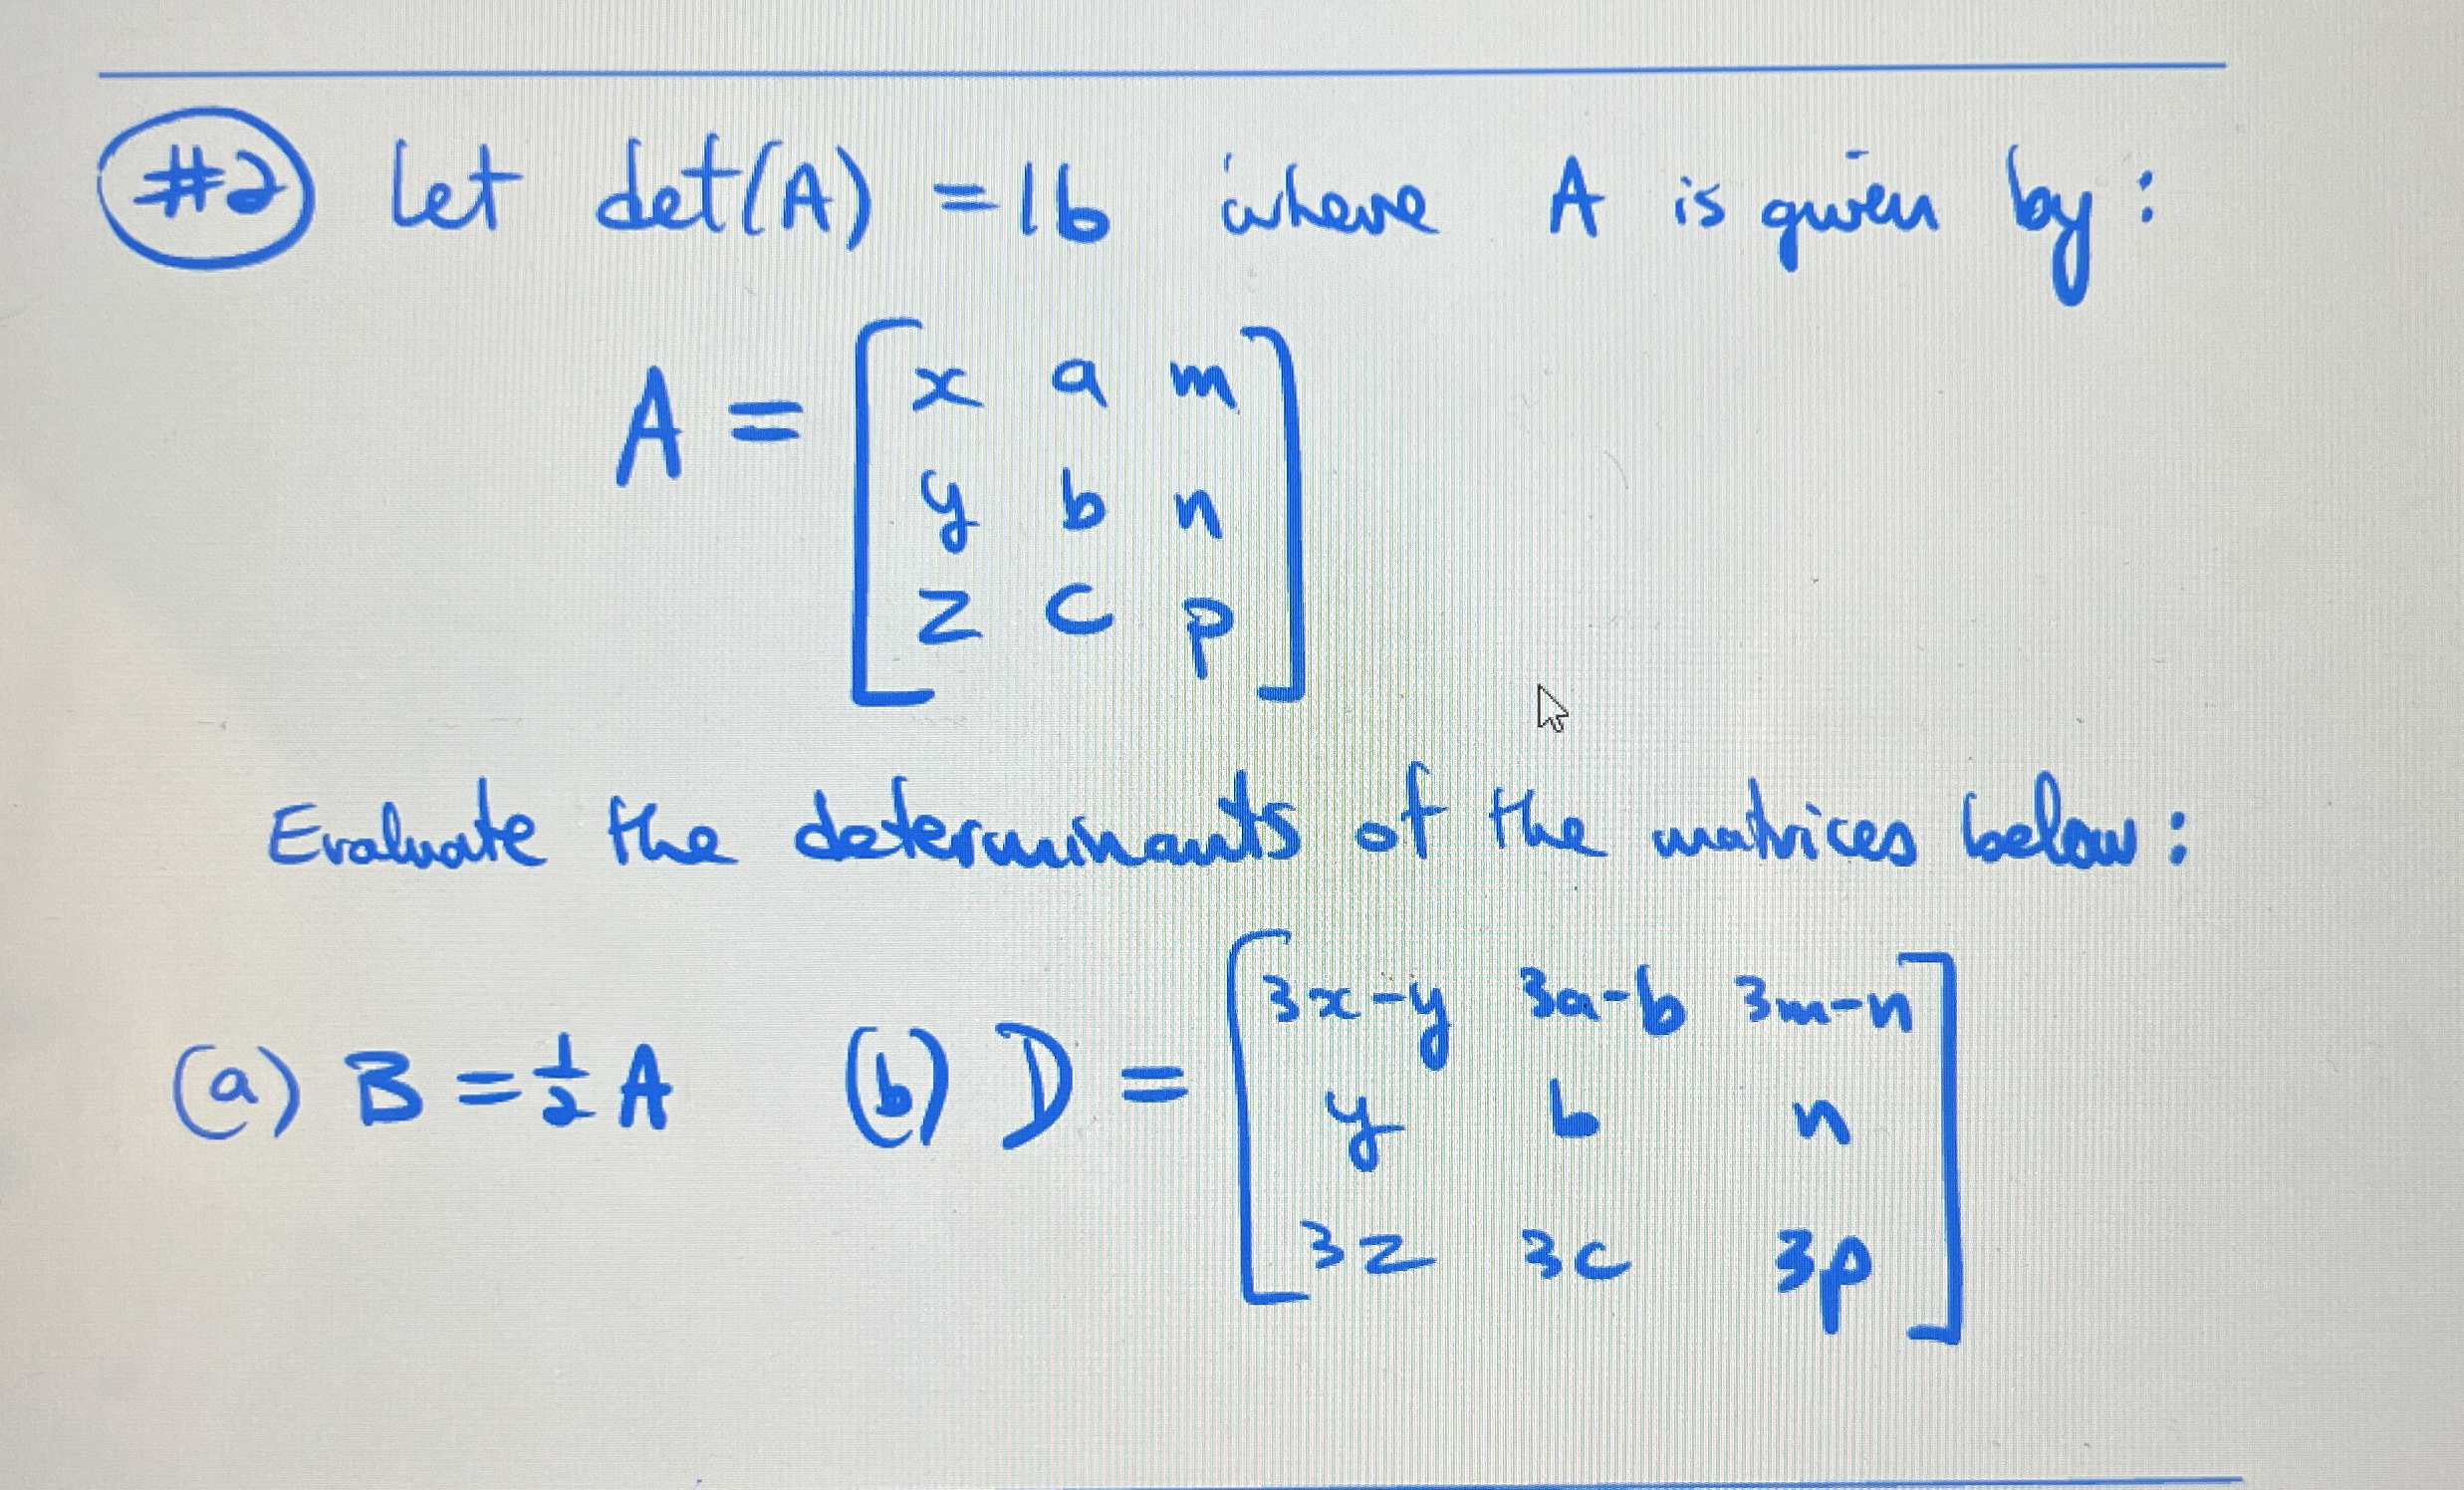 #2 Let det(A) = 16 where A is given by:
A = [ x a m
y b n
z c p ]
Evaluate the determinants of the matrices below:
(a) B = 1/2 A (b) D = [ 3x-y 3a-b 3m-n
y b n
3z 3c 3p ]